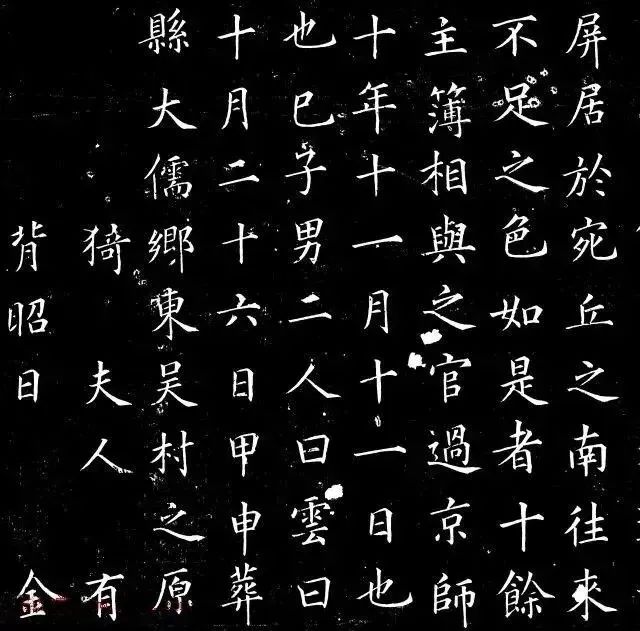 屏居於宛丘之南往來
不足之色如是者十餘
主簿相與之官過京師
十年十一月十一日也
也巳子男二人曰雲曰
十月二十六日甲申葬
縣大儒鄉東吴村之原
猗夫人有
背昭日金